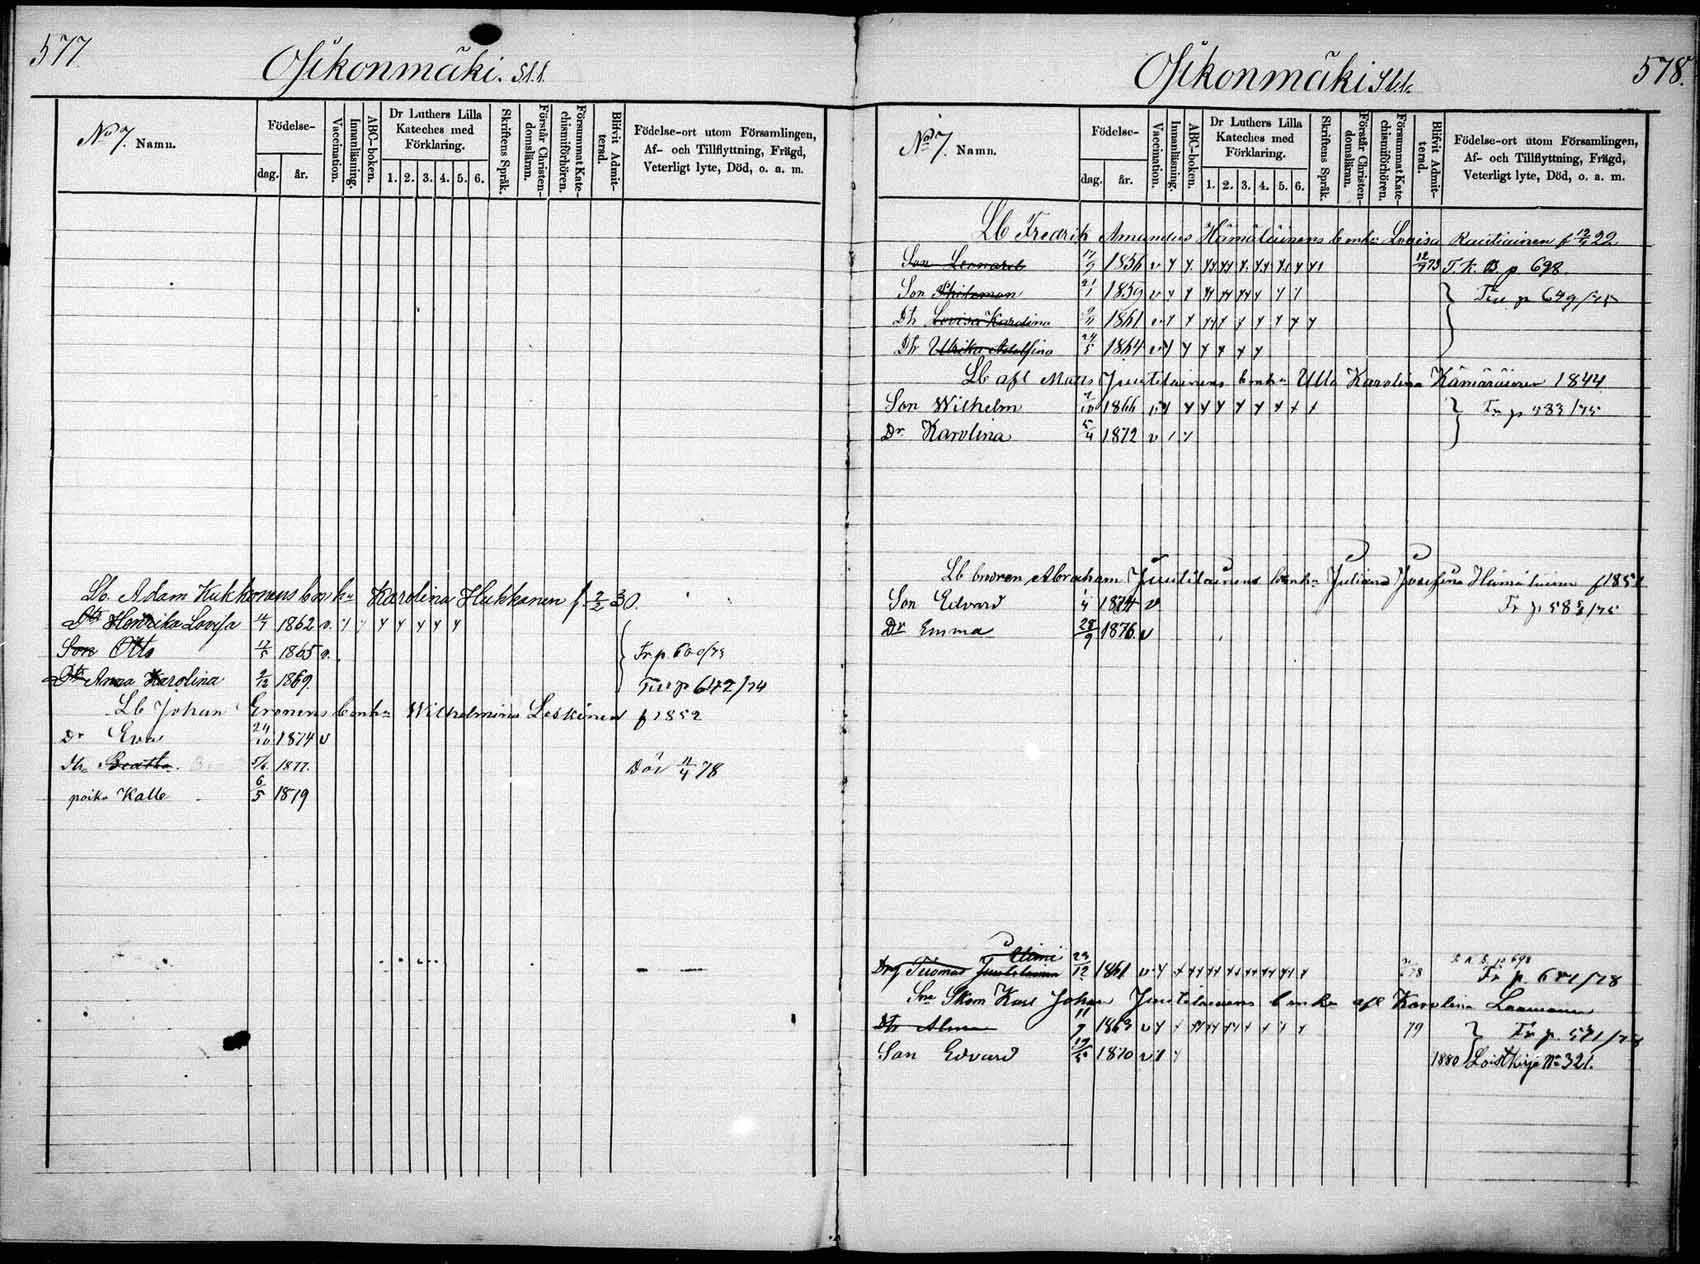 577
Osikonmäki. Sll.
No 7. Namn.
Födelse-
dag. år.
Vaccination.
Innanläsning.
ABC-boken.
Dr Luthers Lilla Kateches med Förklaring.
1. 2. 3. 4. 5. 6.
Skriftens Språk.
Förstår Christendomslänn.
Försummat Katechismiförhören.
Blifvit Admitterad.
Födelse-ort utom Församlingen,
Af- och Tillflyttning, Frägd,
Veterligt lyte, Död, o. a. m.
Lb. Adam Kukkonens enka Karolina Hukkanen f 2/2 30.
Dtr Henrika Lovisa 1862 v.
Son Otto 1865 v. Fr p. 600/73
Dtr Anna Karolina 1869. Till p 642/74
Lb Johan Gronens Wilhelmina Leskinen f 1852
Dr Eva 24/10 1874 v
Dtr Beatta. 1877. Död 11/4 78
poika Kalle 6/5 1879
578.
Osikonmäki Sll.
No 7. Namn.
Födelse-
dag. år.
Vaccination.
Innanläsning.
ABC-boken.
Dr Luthers Lilla Kateches med Förklaring.
1. 2. 3. 4. 5. 6.
Skriftens Språk.
Förstår Christendomsläran.
Försummat Katechismiförhören.
Blifvit Admitterad.
Födelse-ort utom Församlingen,
Af- och Tillflyttning, Frägd,
Veterligt lyte, Död, o. a. m.
Lb Fredrik Amandus Hämäläinens Lovisa Rautiainen f 12/4 22
Son Leonard 17/9 1856 v T. K. B. p 698.
Son Philemon 21/1 1859 v Till p 649/75
Dtr Lovisa Karolina 1861 v
Dtr Ulrika Adolfina 24/5 1864 v
Lb afl Matts Juutilainens enka Ulla Karolina Kämäräinen 1844
Son Wilhelm 1866 v Fr p 583/75
Dr Karolina 5/4 1872 v
Lb brodren Abraham Juutilainens Juliana Josefina Hämäläinen f 1851
Son Edvard 1/4 1874 v Fr p 583/75
Dr Emma 28/9 1876 v
Drg Tuomas Juutilainen 23/12 1861 v T. K. B. p 698 Fr p. 671/78
Skom Karl Johan Juutilainens enka afl Karolina Laamanen
Dtr Alma 11/9 1863 v 79 Fr p. 571/78
Son Edvard 1870 v 1880 Loistkirje No 321.